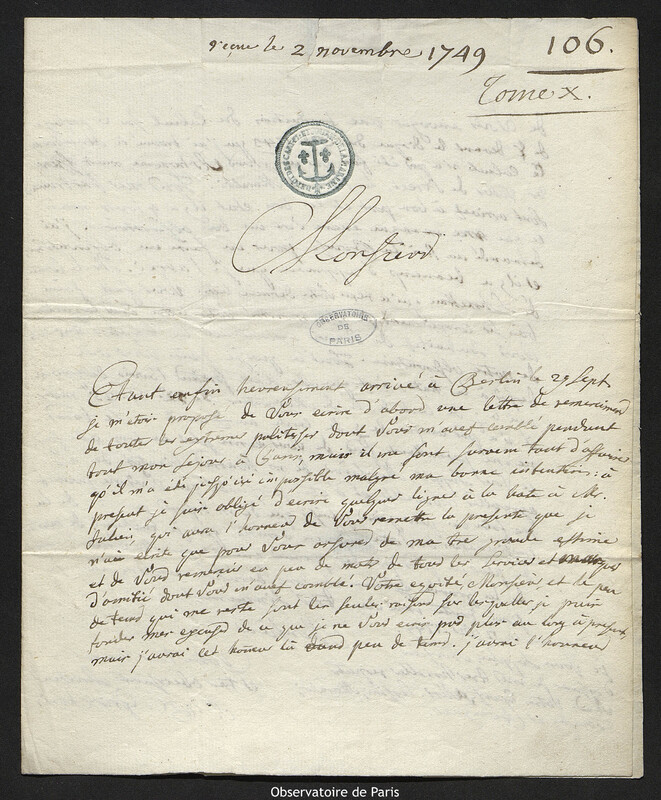 reçue le 2 novembre 1749
106.
Tome X.
Monsieur
OBSERVATOIRE
DE
PARIS
Etant enfin heureusement arrivé à Berlin le 29 Sept
je m'etois proposé de Vous ecrire d'abord une lettre de remerciment
de toutes les extremes politesses dont Vous m'avez comblé pendent
tout mon sejour à Paris, mais il me sont survenu tant d'affaires
qu'il m'a été jusqu'ici impossible malgré ma bonne intention: à
present je suis obligé d'ecrire quelques ligne à la hate à Mr.
qui aura l'honneur de Vous remettre la presente que je
n'ai ecrite que pour Vous assurer de ma tre grande estime
et de Vous remercier en peu de mots de tous les services et
d'amitié dont Vous m'avez comblé. Votre equité, Monsieur, et le peu
de tems qui me reste sont les seules raisons sur lesquelles je puis
fonder mes excuses de ce que je ne Vous ecris pas plus au long à present,
mais j'aurai cet honneur là dans peu de tems. j'aurai l'honneur
Observatoire de Paris